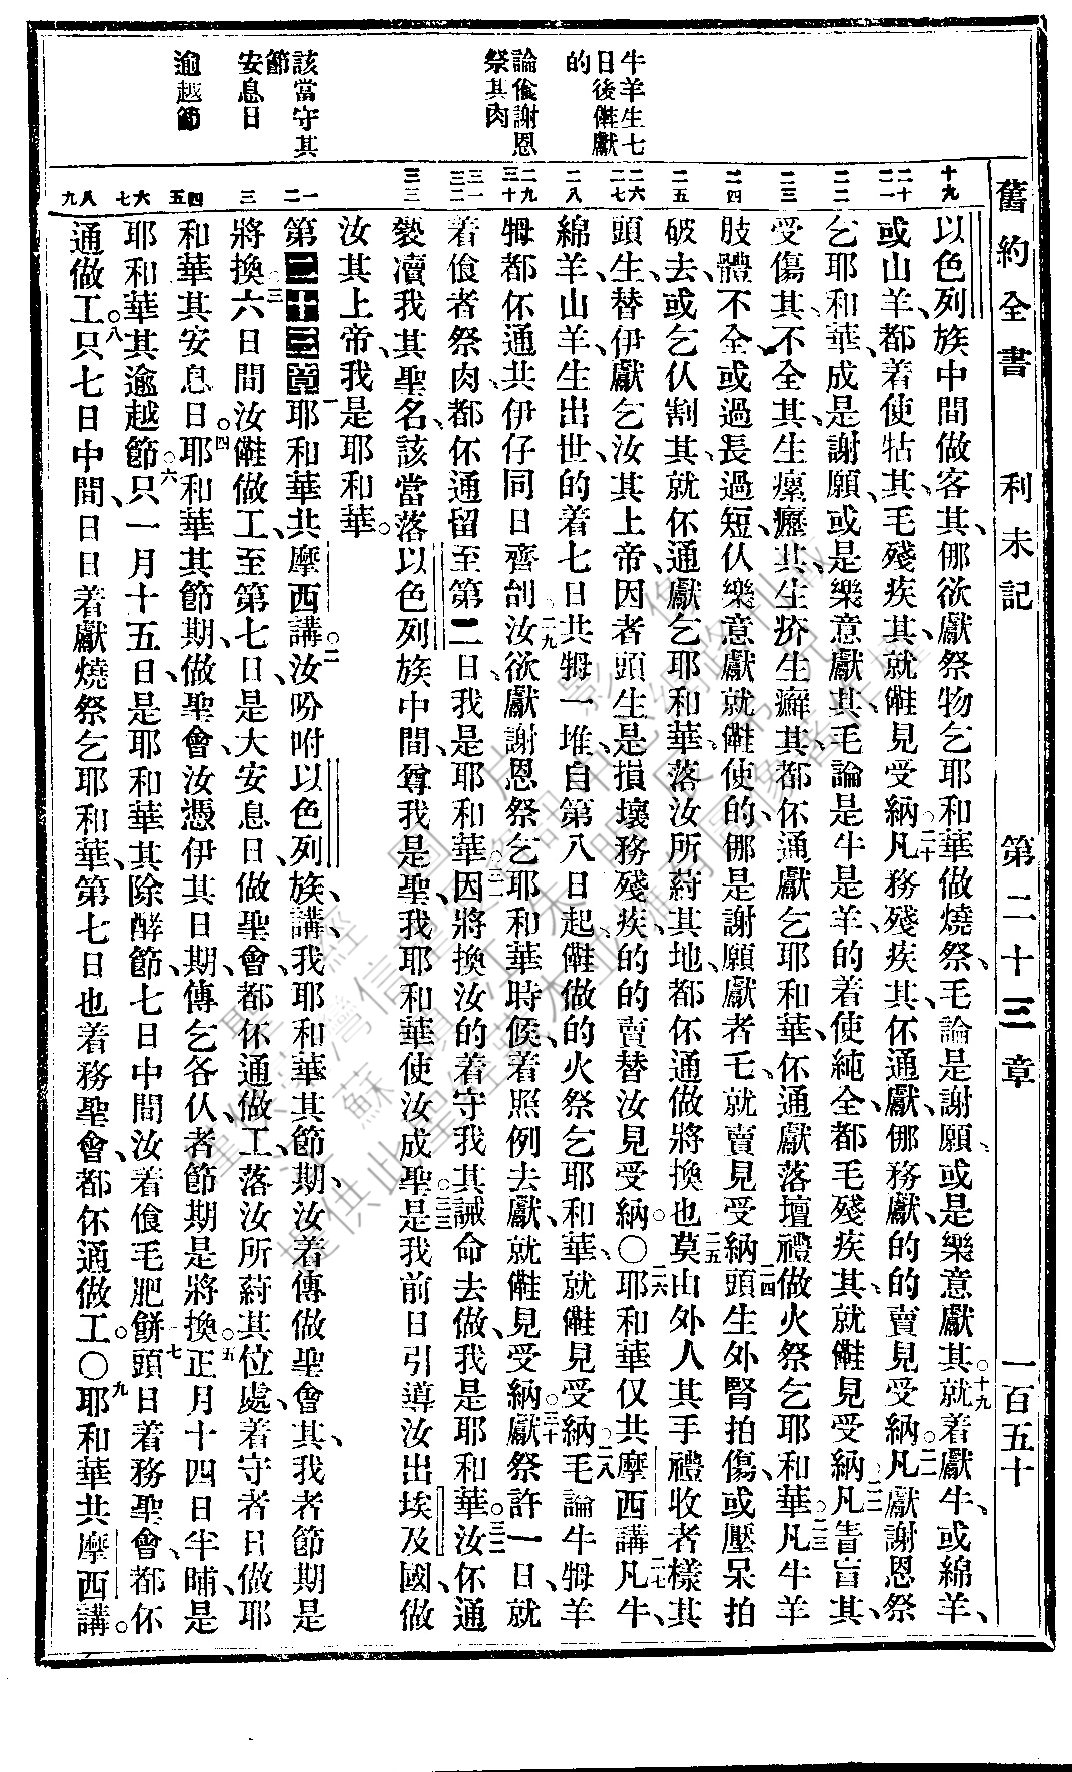 舊約全書　利未記　第二十三章　一百五十
牛羊生七
日後僆獻
的
論僋謝恩
祭其肉
該當守其
節
安息日
逾越節
十九
二十 二一
二二
二三
二四
二五
二六 二七
二八
二九 三十
三一 三二
三三
一 二
三
四 五
六 七
八 九
以色列族中間做客其、倻欲獻祭物乞耶和華做燒祭、毛論是謝願、或是樂意獻其、○十九就着獻牛、或綿羊、
或山羊、都着使牯其、毛殘疾其、就僆見受納。二十凡務殘疾其、伓通獻、倻務獻的、的賣見受納。二一凡獻謝恩祭
乞耶和華、成是謝願、或是樂意獻其、毛論是牛是羊、的着使純全、都毛殘疾其、就僆見受納。二二凡眚盲其、
受傷其、不全其、生瘰癧其、生疥生癬其、都伓通獻乞耶和華、伓通獻落壇禮做火祭乞耶和華。二三凡牛羊
肢體不全、或過長過短、仈樂意獻就僆使的、倻是謝願獻者乇、就賣見受納。二四頭生外腎拍傷、或壓呆拍
破去、或乞仈割其、就伓通獻乞耶和華、落汝所蒔其地、都伓通做將換。二五也莫由外人其手禮收者樣其
頭生、替伊獻乞汝其上帝、因者頭生是損壞務殘疾的、的賣替汝見受納。○二六耶和華仅共摩西講、二七凡牛、
綿羊、山羊、生出世的、着七日共㛛一堆、自第八日起、僆做的火祭乞耶和華、就僆見受納。二八毛論牛㛛羊
㛛、都伓通共伊仔同日齊刣。二九汝欲獻謝恩祭乞耶和華時候、着照例去獻、就僆見受納。三十獻祭許一日、就
着僋者祭肉、都伓通留至第二日、我是耶和華。三一因將換汝的着守我其誡命去做、我是耶和華。三二汝伓通
褻瀆我其聖名、該當落以色列族中間、尊我是聖、我耶和華使汝成聖。三三是我前日引導汝出埃及國、做
汝其上帝、我是耶和華。
第二十三章　一耶和華共摩西講、二汝吩咐以色列族講、我耶和華其節期、汝着傳做聖會其、我者節期是
將換。三六日間汝僆做工、至第七日是大安息日、做聖會、都伓通做工、落汝所蒔其位處、着守者日做耶
和華其安息日。四耶和華其節期、做聖會、汝憑伊其日期、傳乞各仈者節期是將換。五正月十四日半晡、是
耶和華其逾越節。六只一月十五日、是耶和華其除酵節、七日中間汝着僋毛肥餅。七頭日着務聖會、都伓
通做工。八只七日中間、日日着獻燒祭乞耶和華、第七日也着務聖會、都伓通做工。○九耶和華共摩西講。